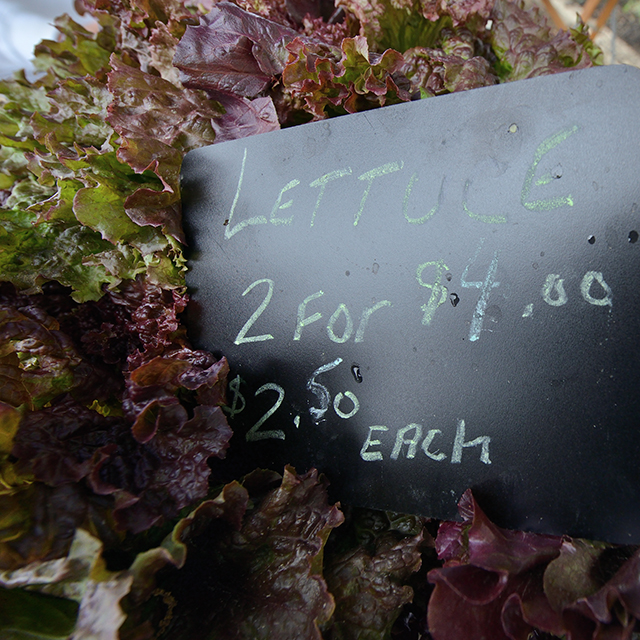 LETTUCE
2 FOR $4.00
$2.50
EACH